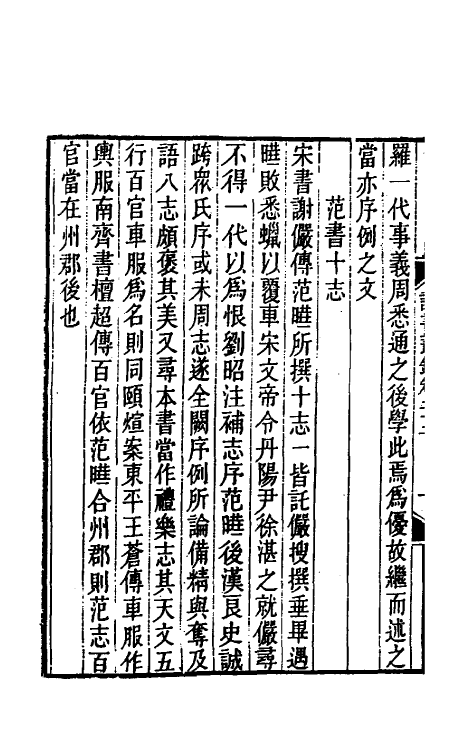 羅一代事義周悉通之後學此焉爲優故繼而述之
當亦序例之文
范書十志
宋書謝儼傳范瞱所撰十志一皆託儼搜撰垂畢遇
瞱敗悉蠟以覆車宋文帝令丹陽尹徐湛之就儼尋
不得一代以爲恨劉昭注補志序范瞱後漢良史誠
跨衆氏序或未周志遂全闕序例所論備精與奪及
語八志頗褒其美又尋本書當作禮樂志其天文五
行百官車服爲名則同頤煊案東平王蒼傳車服作
輿服南齊書檀超傳百官依范瞱合州郡則范志百
官當在州郡後也